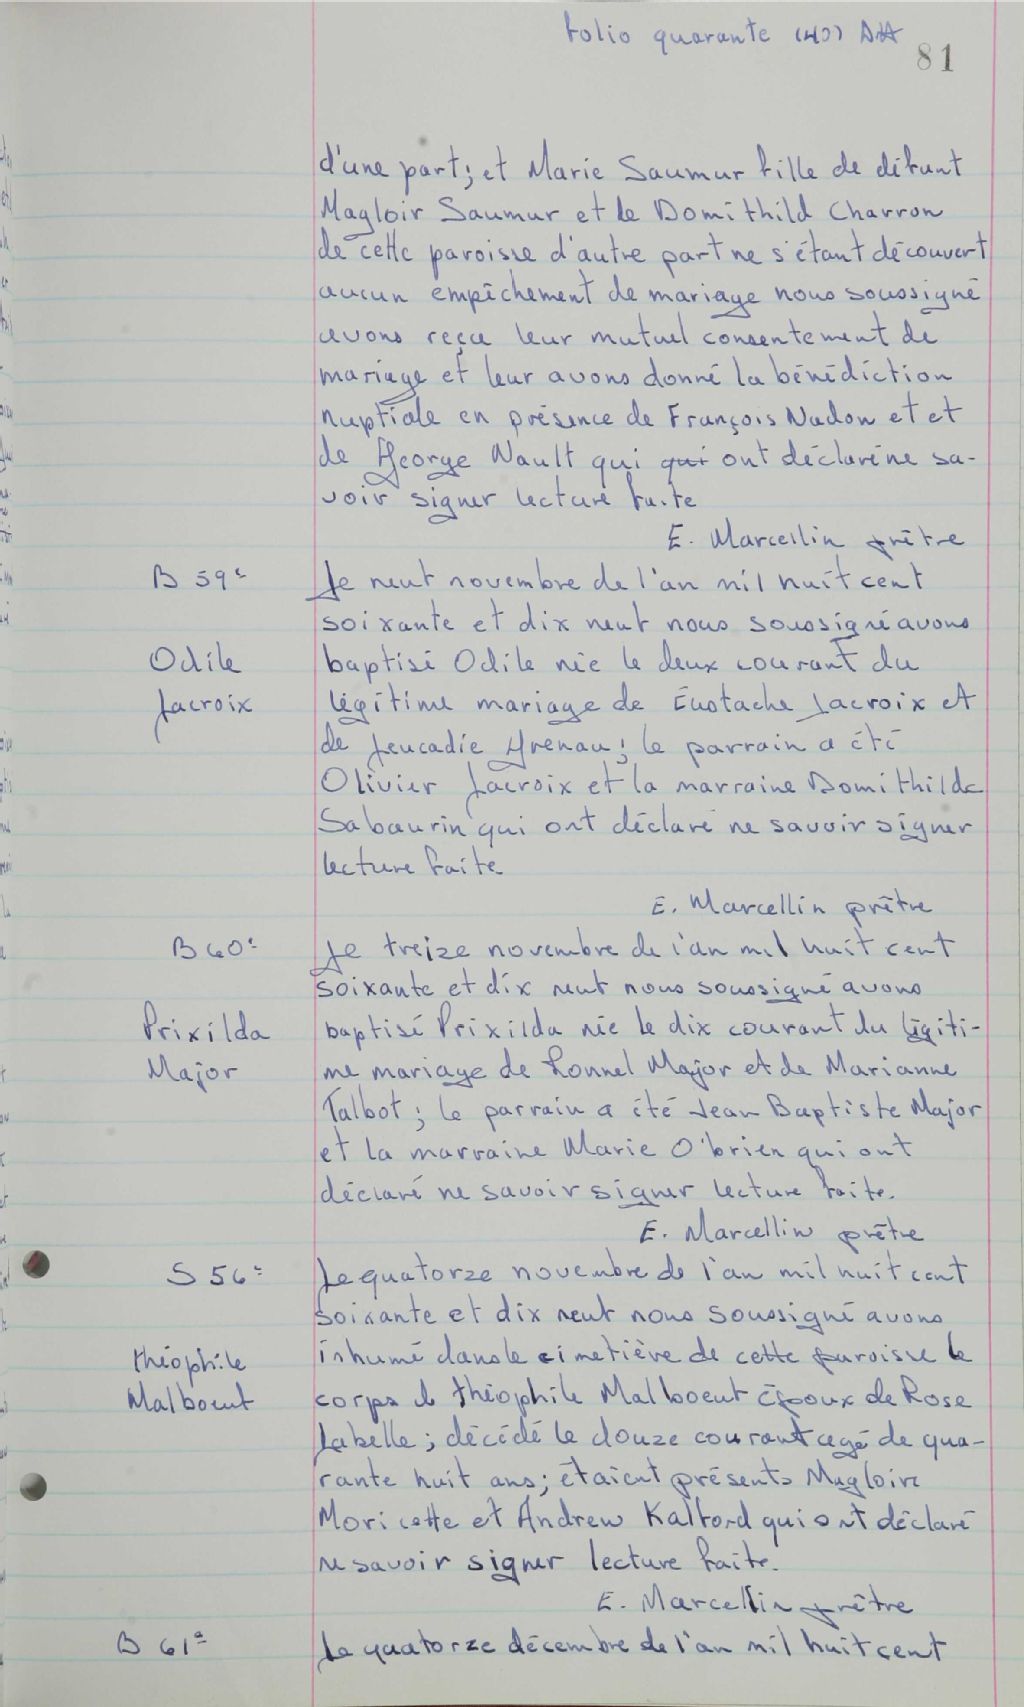 folio quarante (40) DH
81
d'une part; et Marie Saumur fille de défunt
Magloir Saumur et de Domithild Charron
de cette paroisse d'autre part ne s'étant découvert
aucun empêchement de mariage nous soussigné
avons reçu leur mutuel consentement de
mariage et leur avons donné la bénédiction
nuptiale en présence de François Nadon et et
de George Nault qui qui ont déclaré ne sa-
voir signer lecture faite
E. Marcellin prêtre
B 59e
Le neuf novembre de l'an mil huit cent
soixante et dix neuf nous soussigné avons
Odile
baptisé Odile née le deux courant du
Lacroix
légitime mariage de Eustache Lacroix et
de Leucadie Grenau; le parrain a été
Olivier Lacroix et la marraine Domithilde
Sabourin qui ont déclaré ne savoir signer
lecture faite
E. Marcellin prêtre
B 60e
Le treize novembre de l'an mil huit cent
soixante et dix neuf nous soussigné avons
Prixilda
baptisé Prixilda née le dix courant du légiti-
Major
me mariage de Lonnel Major et de Marianne
Talbot; le parrain a été Jean Baptiste Major
et la marraine Marie O'brien qui ont
déclaré ne savoir signer lecture faite.
E. Marcellin prêtre
S 56e
Le quatorze novembre de l'an mil huit cent
soixante et dix neuf nous soussigné avons
théophile
inhumé dans le cimetière de cette paroisse le
Malboeuf
corps de théophile Malboeuf époux de Rose
Labelle; décédé le douze courant agé de qua-
rante huit ans; étaient présents Magloire
Moricette et Andrew Kalford qui ont déclaré
ne savoir signer lecture faite.
E. Marcellin prêtre
B 61e
Le quatorze décembre de l'an mil huit cent